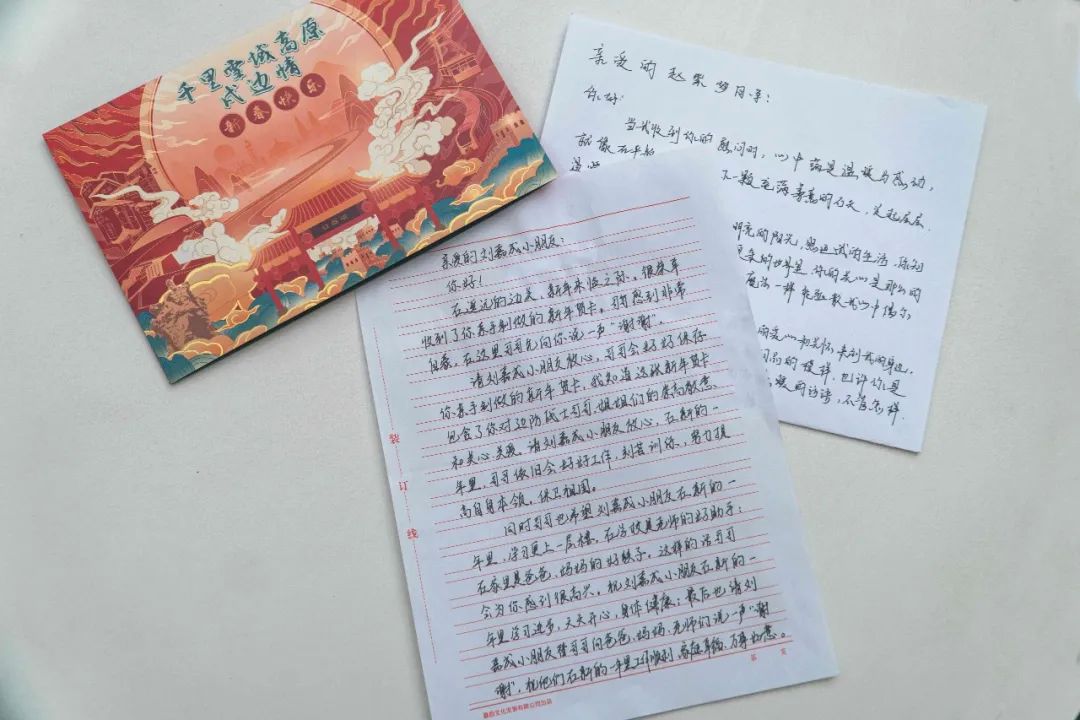 千里雪域高原
戍边情
新春快乐
亲爱的赵紫梦同学：
你好！
当我收到你的慰问时，心中满是温暖与感动，
就像在平
温
下一颗充满善意的石头，泛起层层
明亮的阳光，照进我的生活，你句
的世界里，你的关心是那么的
魔法一样
的爱心和关怀，来到我的身边，
的模样，也许你是
不管怎样
亲爱的刘嘉成小朋友：
你好！
在遥远的边关，新年来临之际，很荣幸
收到了你亲手制做的新年贺卡，哥哥感到非常
自豪，在这里哥哥先向你说一声“谢谢”。
请刘嘉成小朋友放心，哥哥会好好保存
你亲手制做的新年贺卡，我知道这张新年贺卡
包含了你对边防战士哥哥、姐姐们的崇高敬意
和关心关爱。请刘嘉成小朋友放心，在新的一
年里，哥哥依旧会好好工作，刻苦训练，努力提
高自身本领，保卫祖国。
同时哥哥也希望刘嘉成小朋友在新的一
年里，学习更上一层楼。在学校是老师的好助手；
在家里是爸爸、妈妈的好孩子，这样的话哥哥
会为你感到很高兴。祝刘嘉成小朋友在新的一
年里学习进步，天天开心，身体健康；最后也请刘
嘉成小朋友替哥哥向爸爸、妈妈、老师们说一声“谢
谢”，祝他们在新的一年里工作顺利，家庭幸福，万事如意。
装
订
线
第 页